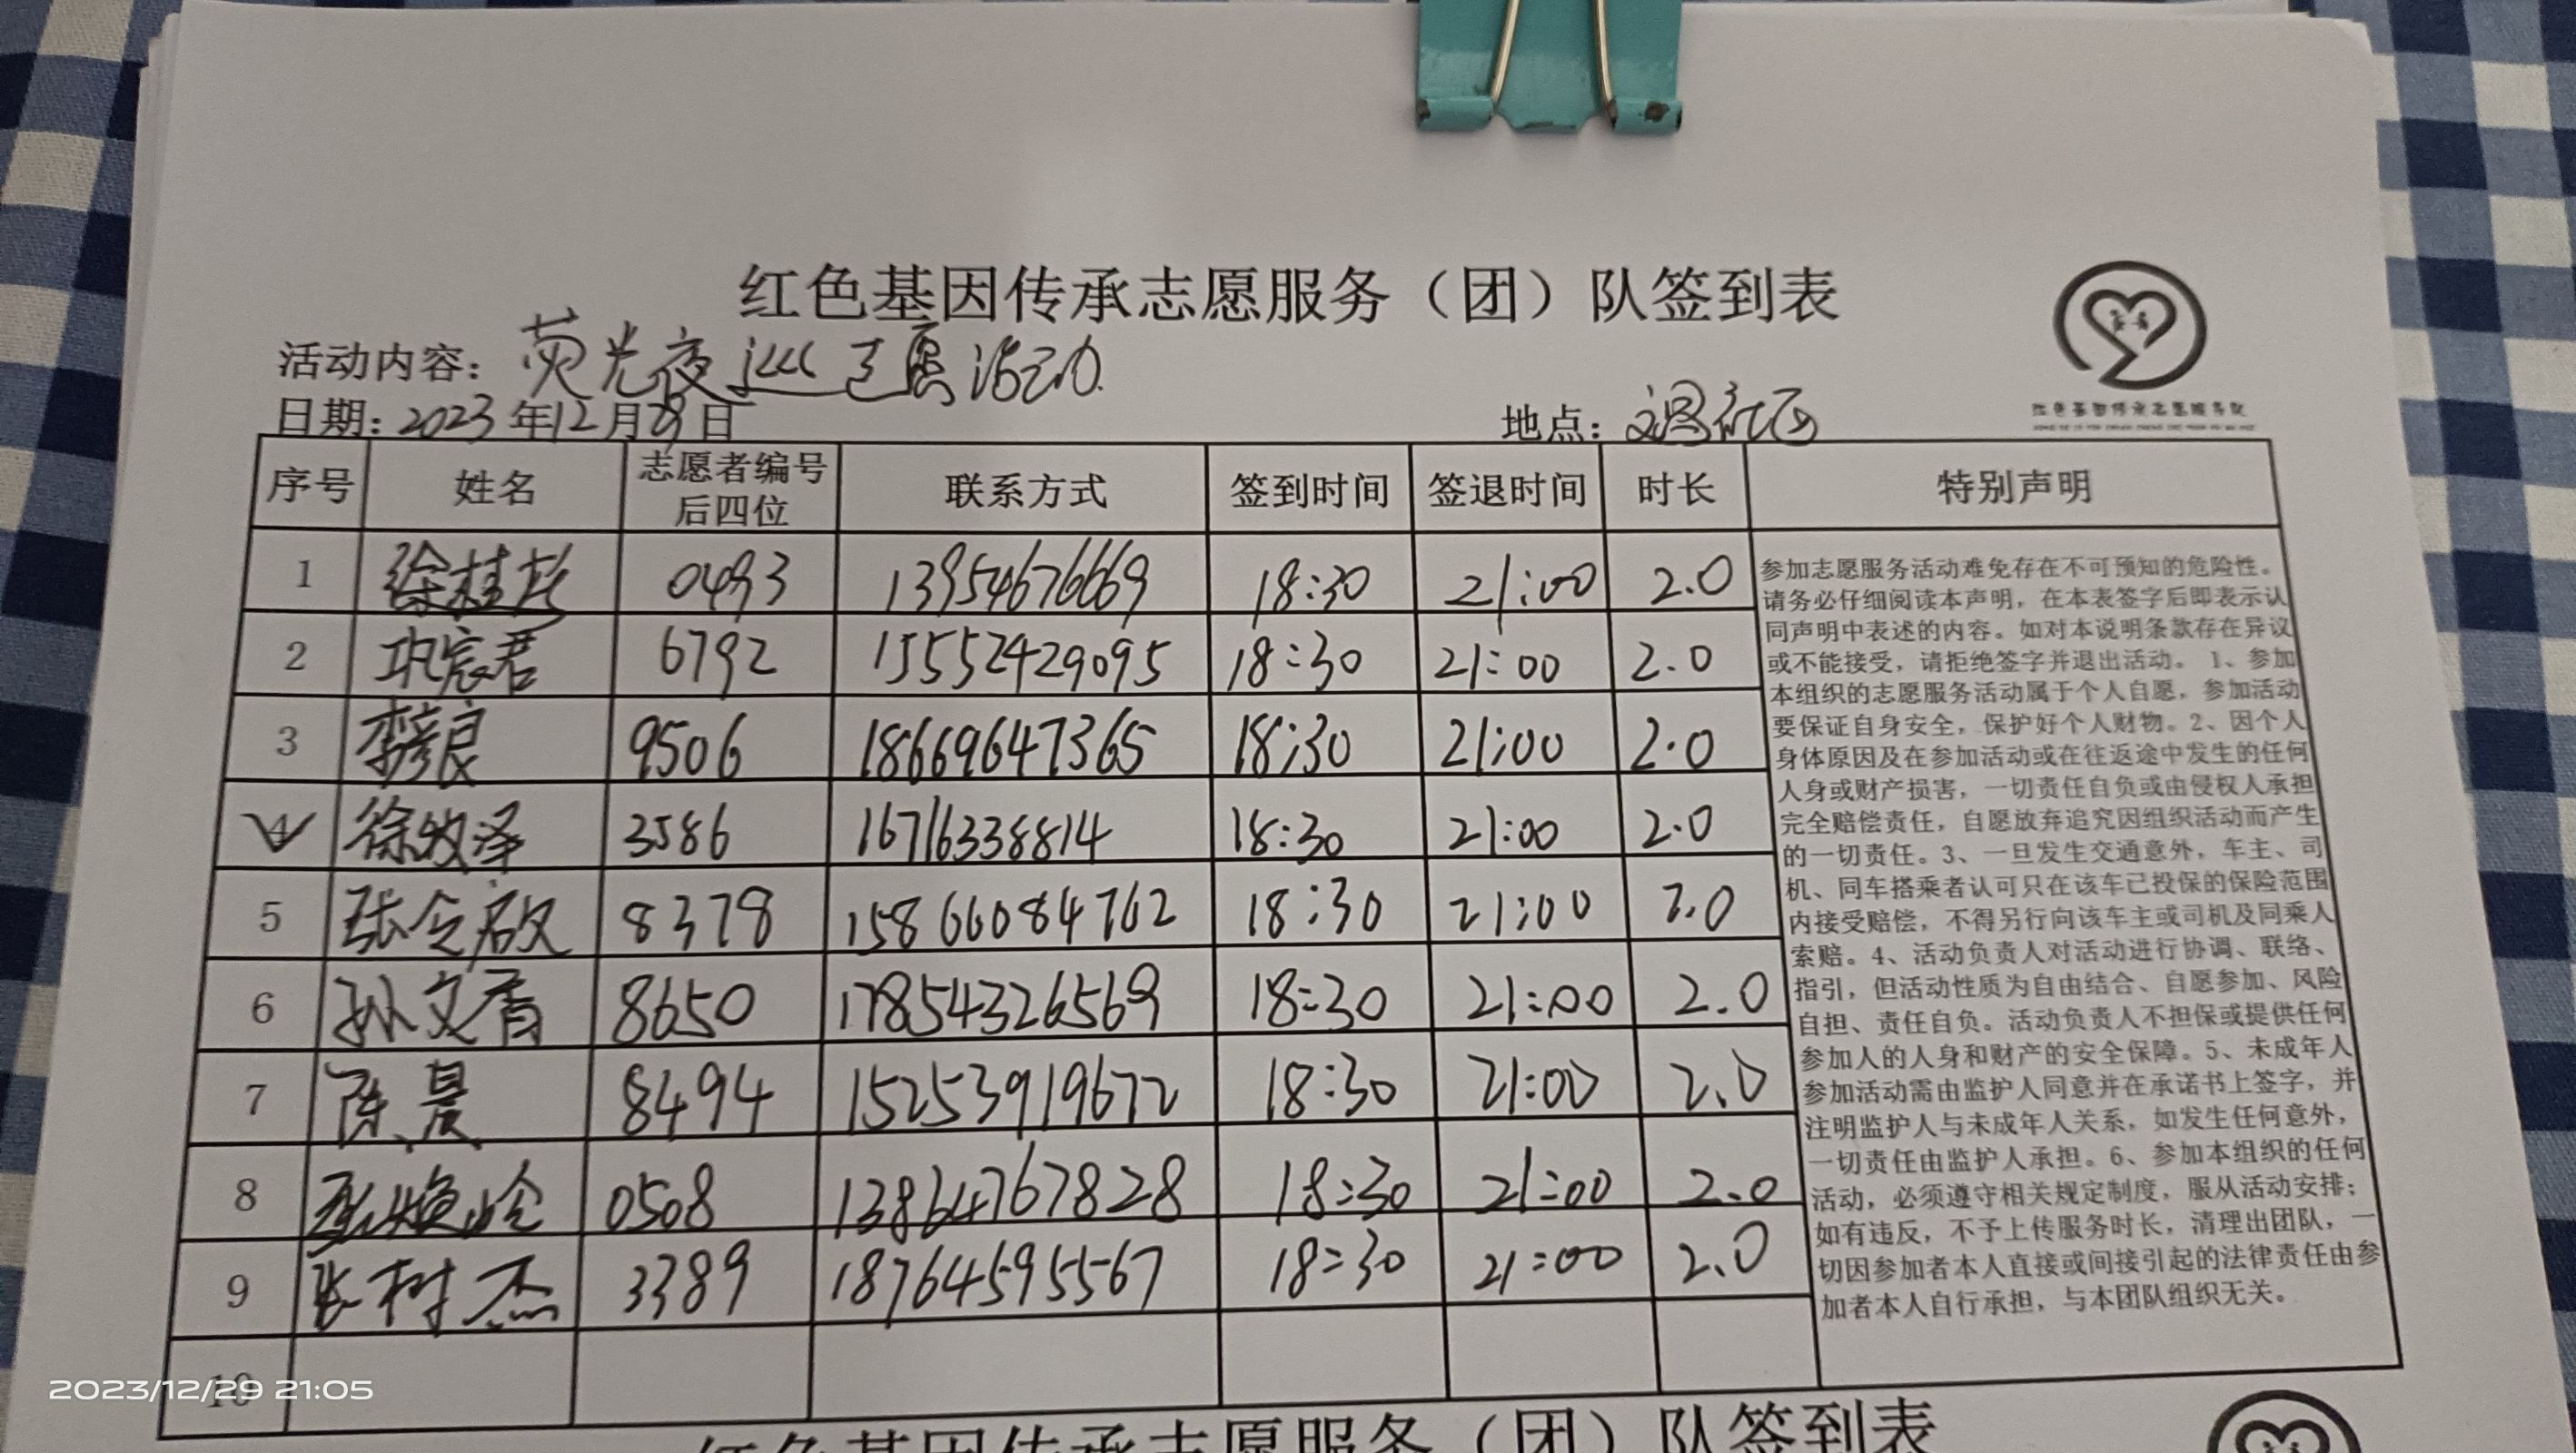 红色基因传承志愿服务（团）队签到表
活动内容：荧光夜巡志愿活动
日期：2023年12月29日 地点：社区
红色基因传承志愿服务队
序号 姓名 志愿者编号后四位 联系方式 签到时间 签退时间 时长 特别声明
1 徐桂彭 0493 13954676669 18:30 21:00 2.0
2 巩宸君 6792 15552429095 18:30 21:00 2.0
3 李彦良 9506 18669647365 18:30 21:00 2.0
4 徐牧泽 3586 16716338814 18:30 21:00 2.0
5 张令啟 8378 15866084762 18:30 21:00 2.0
6 孙文香 8650 17854326569 18:30 21:00 2.0
7 陈晨 8494 15253919672 18:30 21:00 2.0
8 焕岭 0508 13864767828 18:30 21:00 2.0
9 张树杰 3389 18764595567 18:30 21:00 2.0
10
参加志愿服务活动难免存在不可预知的危险性。
请务必仔细阅读本声明，在本表签字后即表示认
同声明中表述的内容。如对本说明条款存在异议
或不能接受，请拒绝签字并退出活动。 1、参加
本组织的志愿服务活动属于个人自愿，参加活动
要保证自身安全，保护好个人财物。2、因个人
身体原因及在参加活动或在往返途中发生的任何
人身或财产损害，一切责任自负或由侵权人承担
完全赔偿责任，自愿放弃追究因组织活动而产生
的一切责任。3、一旦发生交通意外，车主、司
机、同车搭乘者认可只在该车已投保的保险范围
内接受赔偿，不得另行向该车主或司机及同乘人
索赔。4、活动负责人对活动进行协调、联络、
指引，但活动性质为自由结合、自愿参加、风险
自担、责任自负。活动负责人不担保或提供任何
参加人的人身和财产的安全保障。5、未成年人
参加活动需由监护人同意并在承诺书上签字，并
注明监护人与未成年人关系，如发生任何意外，
一切责任由监护人承担。6、参加本组织的任何
活动，必须遵守相关规定制度，服从活动安排；
如有违反，不予上传服务时长，清理出团队，一
切因参加者本人直接或间接引起的法律责任由参
加者本人自行承担，与本团队组织无关。
2023/12/29 21:05
红色基因传承志愿服务（团）队签到表